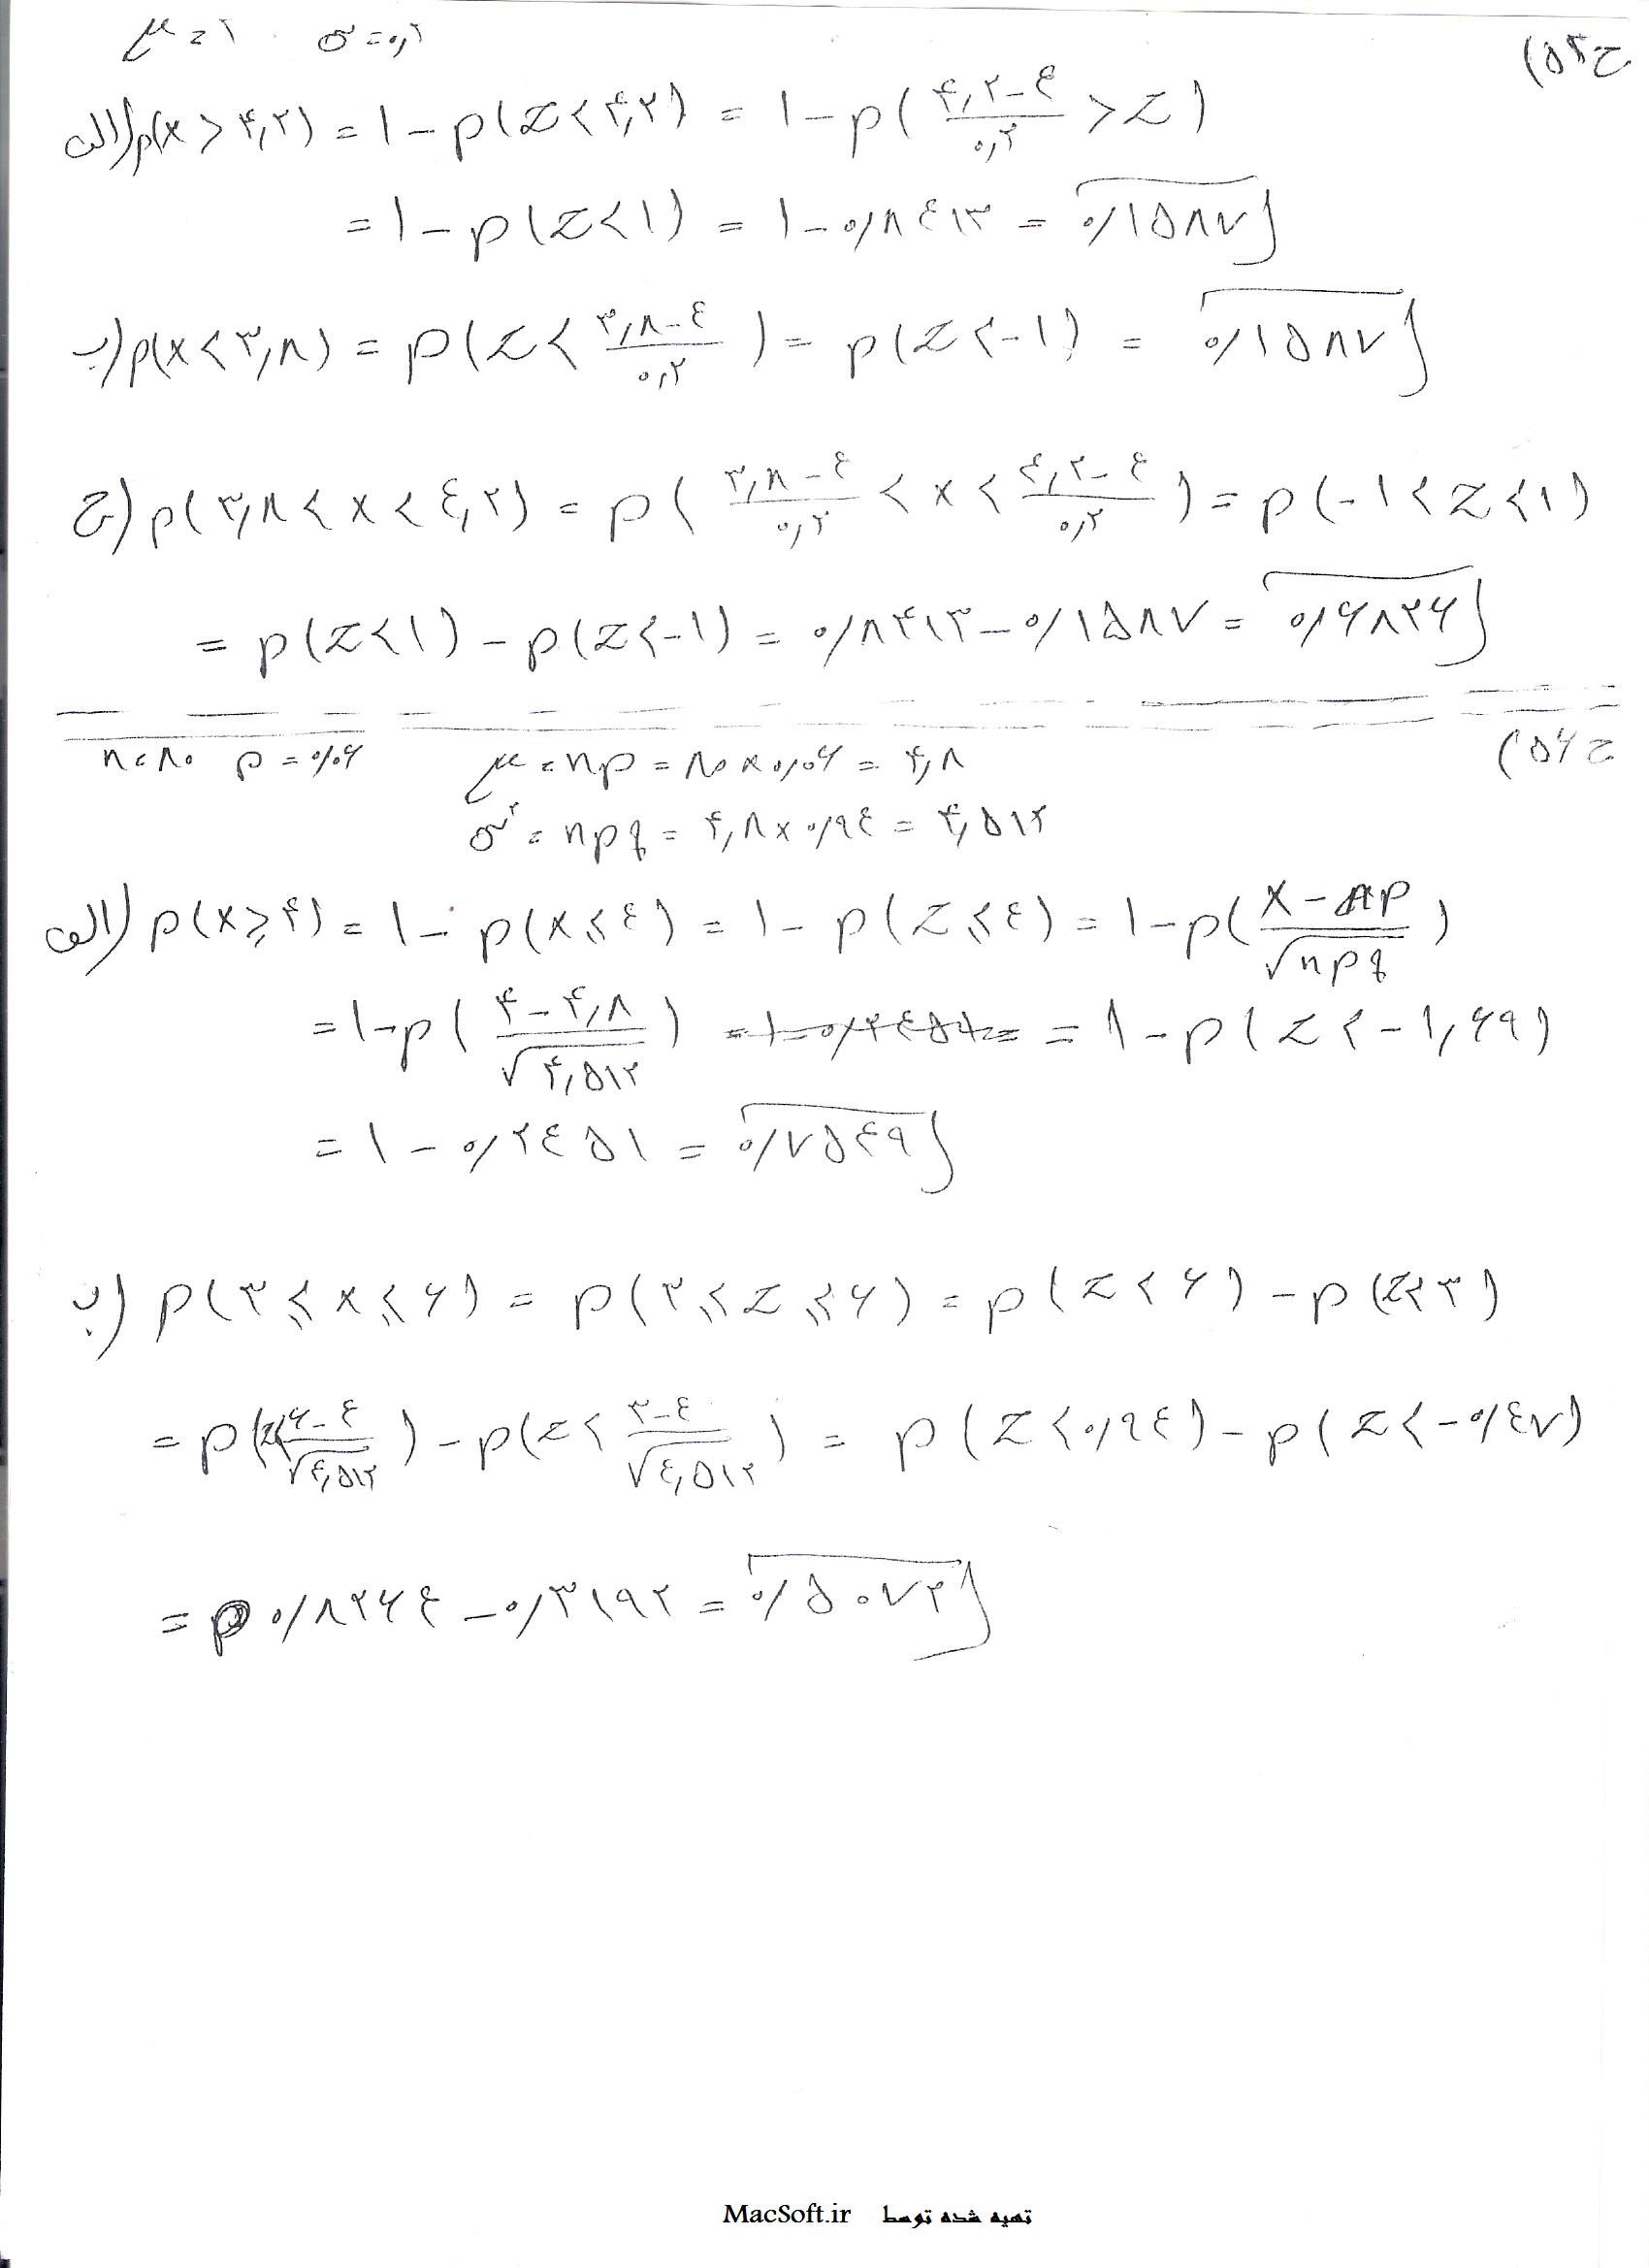 ج۵۲)
μ = ۱ σ = ۰٫۲
الف) p(x > ۴٫۲) = ۱ − p(Z < ۴٫۲) = ۱ − p( (۴٫۲−۴)/۰٫۲ > Z )
= ۱ − p(Z < ۱) = ۱ − ۰/۸۴۱۳ = ۰/۱۵۸۷
ب) p(x < ۳٫۸) = p(Z < (۳٫۸−۴)/۰٫۲ ) = p(Z < −۱) = ۰/۱۵۸۷
ج) p(۳٫۸ < x < ۴٫۲) = p( (۳٫۸−۴)/۰٫۲ < x < (۴٫۲−۴)/۰٫۲ ) = p(−۱ < Z < ۱)
= p(Z < ۱) − p(Z < −۱) = ۰/۸۴۱۳ − ۰/۱۵۸۷ = ۰/۶۸۲۶
ج۵۶)
n = ۸۰ p = ۰/۰۶ μ = np = ۸۰ × ۰/۰۶ = ۴٫۸
σ² = npq = ۴٫۸ × ۰/۹۴ = ۴٫۵۱۲
الف) p(x ≥ ۴) = ۱ − p(x ≤ ۴) = ۱ − p(Z ≤ ۴) = ۱ − p( (x − np)/√npq )
= ۱ − p( (۴ − ۴٫۸)/√۴٫۵۱۲ ) = ۱ − p(Z < −۱٫۶۹)
= ۱ − ۰/۲۴۵۱ = ۰/۷۵۴۹
ب) p(۳ ≤ x ≤ ۶) = p(۳ ≤ Z ≤ ۶) = p(Z < ۶) − p(Z < ۳)
= p(Z < (۶−۴)/√۴٫۵۱۲ ) − p(Z < (۳−۴)/√۴٫۵۱۲ ) = p(Z < ۰/۹۴) − p(Z < −۰/۴۷)
= ۰/۸۲۶۴ − ۰/۳۱۹۲ = ۰/۵۰۷۲
تهیه شده توسط MacSoft.ir